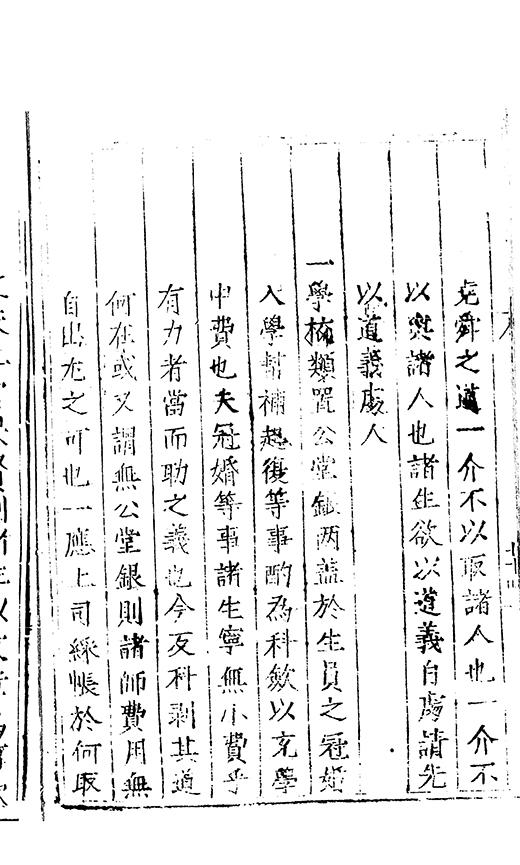 堯舜之道一介不以取諸人也一介不
以與諸人也諸生欲以道義自處請先
以道義處人
一學校類置公堂銀两蓋於生員之冠婚
入學幇補起復等事酌為科斂以充學
中費也夫冠婚等事諸生寧無小費乎
有力者當而助之義也今反科剥其道
何在或又謂無公堂銀則諸師費用無
自出左之可也一應上司綵帳於何取